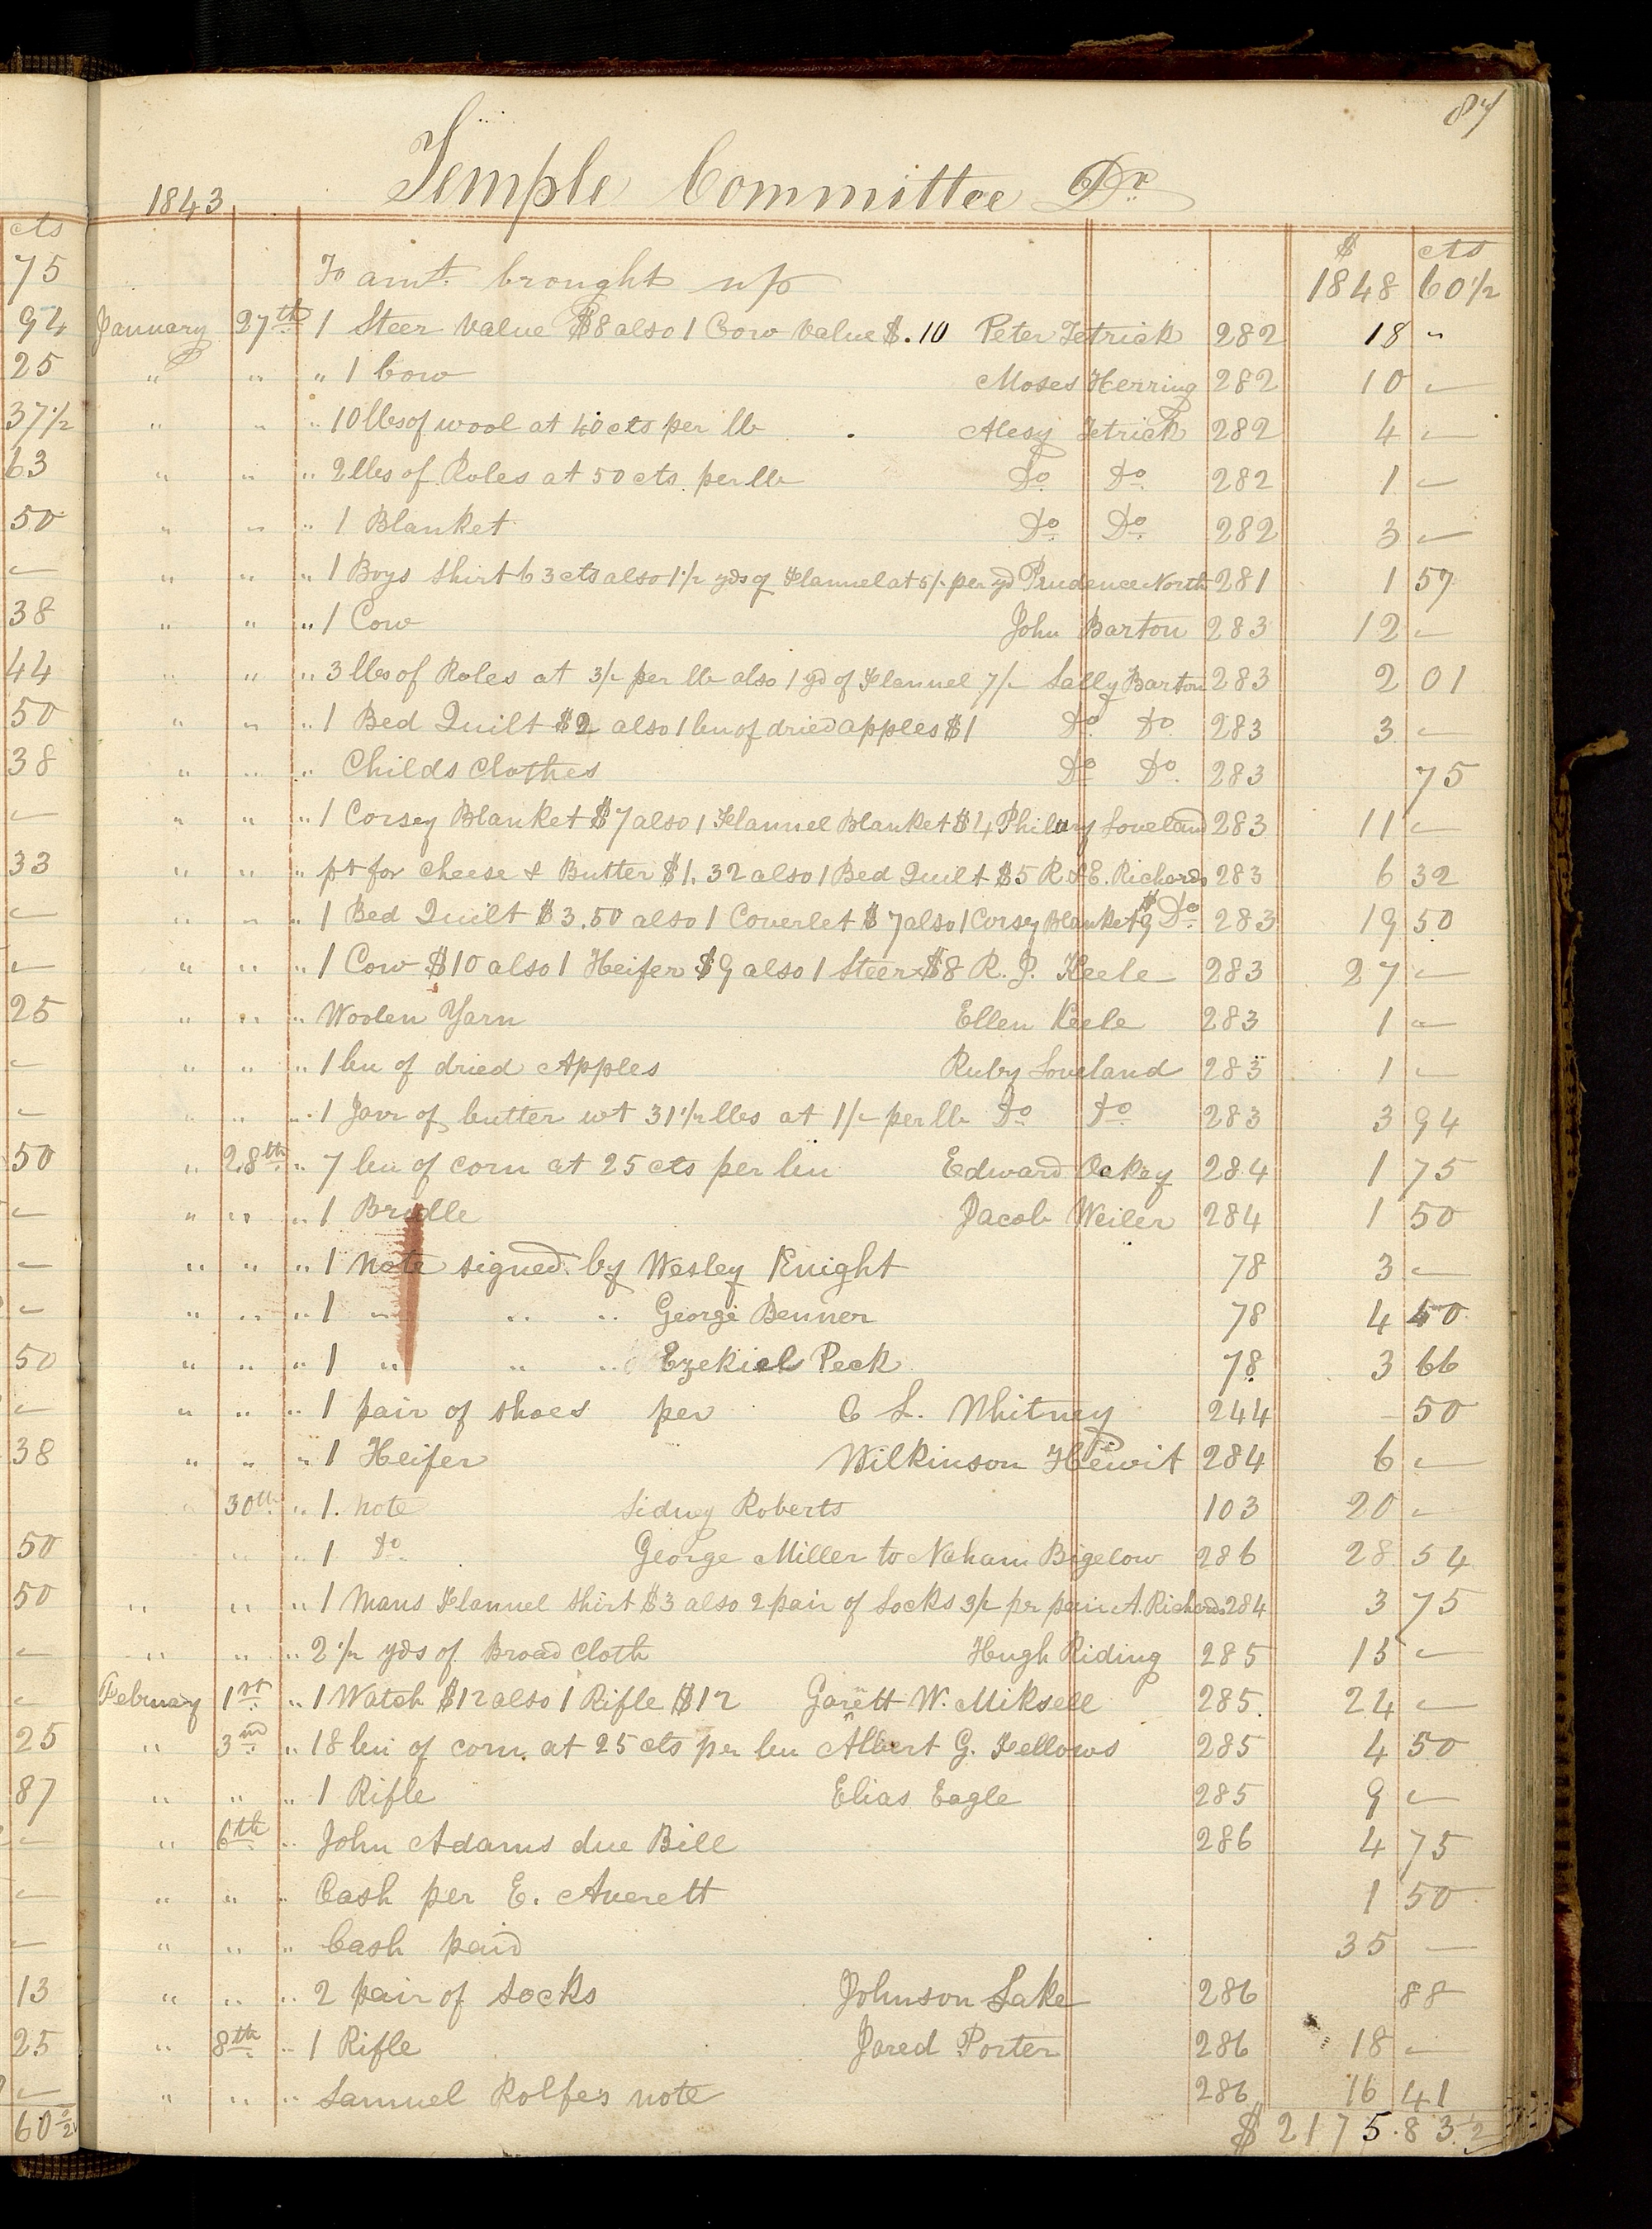 87
Temple Committee Dr
1843
$ cts
To amt. brought up 1848 60 1/2
January 27th 1 Steer value $8 also 1 Cow value $.10 Peter Tetrick 282 18 "
" " " 1 Cow Moses Herring 282 10 —
" " " 10 lbs of wool at 40 cts per lb Alesy Tetrick 282 4 —
" " " 2 lbs of Roles at 50 cts per lb Do Do 282 1 —
" " " 1 Blanket Do Do 282 3 —
" " " 1 Boys Shirt 63 cts also 1 1/2 yds of Flannel at 5/- per yd Prudence North 281 1 57
" " " 1 Cow John Barton 283 12 —
" " " 3 lbs of Roles at 3/- per lb also 1 yd of Flannel 7/- Sally Barton 283 2 01
" " " 1 Bed Quilt $2 also 1 bu of dried apples $1 Do Do 283 3 —
" " " Childs Clothes Do Do 283 75
" " " 1 Corsey Blanket $7 also 1 Flannel Blanket $4 Philury Loveland 283 11 —
" " " pt for cheese & Butter $1.32 also 1 Bed Quilt $5 R & E. Richards 283 6 32
" " " 1 Bed Quilt $3.50 also 1 Coverlet $7 also 1 Corsey Blanket $9 Do 283 19 50
" " " 1 Cow $10 also 1 Heifer $9 also 1 Steer $8 R. J. Keele 283 27 —
" " " Woolen Yarn Ellen Keele 283 1 —
" " " 1 bu of dried Apples Ruby Loveland 283 1 —
" " " 1 Jarr of butter wt 31 1/2 lbs at 1/- per lb Do Do 283 3 94
" 28th " 7 bu of corn at 25 cts per bu Edward Oakey 284 1 75
" " " 1 Bridle Jacob Weiler 284 1 50
" " " 1 note signed by Wesley Knight 78 3 —
" " " 1 " " " George Benner 78 4 50
" " " 1 " " " Ezekiel Peck 78 3 66
" " " 1 pair of shoes per C L. Whitney 244 – 50
" " " 1 Heifer Wilkinson Hewit 284 6 —
" 30th " 1. note Sidney Roberts 103 20 —
" " 1 Do George Miller to Naham Bigelow 286 28 54
" " " 1 Mans Flannel Shirt $3 also 2 pair of Socks 3/- pr pair A. Richards 284 3 75
" " " 2 1/2 yds of Broad cloth Hugh Riding 285 15 —
February 1st " 1 Watch $12 also 1 Rifle $12 Garett W. Miksell 285 24 —
" 3rd " 18 bu of corn at 25 cts per bu Albert G. Fellows 285 4 50
" " " 1 Rifle Elias Eagle 285 9 —
" 6th " John Adams due Bill 286 4 75
" " " Cash per E. Averett 1 50
" " " Cash paid 35 —
" " " 2 pair of socks Johnson Lake 286 88
" 8th " 1 Rifle Jared Porter 286 18 —
" " " Samuel Rolfes note 286 16 41
$2175.83 1/2
cts
75
94
25
37 1/2
63
50
—
38
44
50
38
—
33
—
—
25
—
—
50
—
—
—
50
—
38
50
50
—
—
25
87
—
—
—
13
25
—
60 1/2